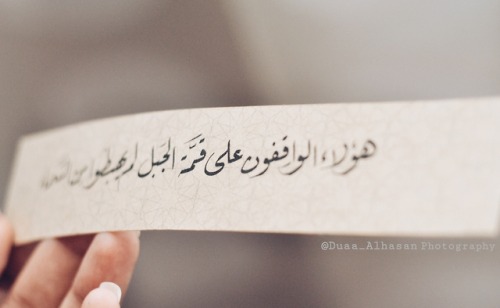 هؤلاء الواقفون على قمَّة الجبل لم يهبطوا من السماء
@Duaa_Alhasan Photography